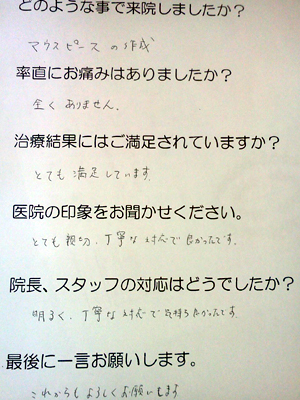 どのような事で来院しましたか？
マウスピースの作成
率直にお痛みはありましたか？
全くありません。
治療結果にはご満足されていますか？
とても満足しています。
医院の印象をお聞かせください。
とても親切、丁寧な対応で良かったです。
院長、スタッフの対応はどうでしたか？
明るく、丁寧な対応で気持ちよかったです。
最後に一言お願いします。
これからもよろしくお願いします